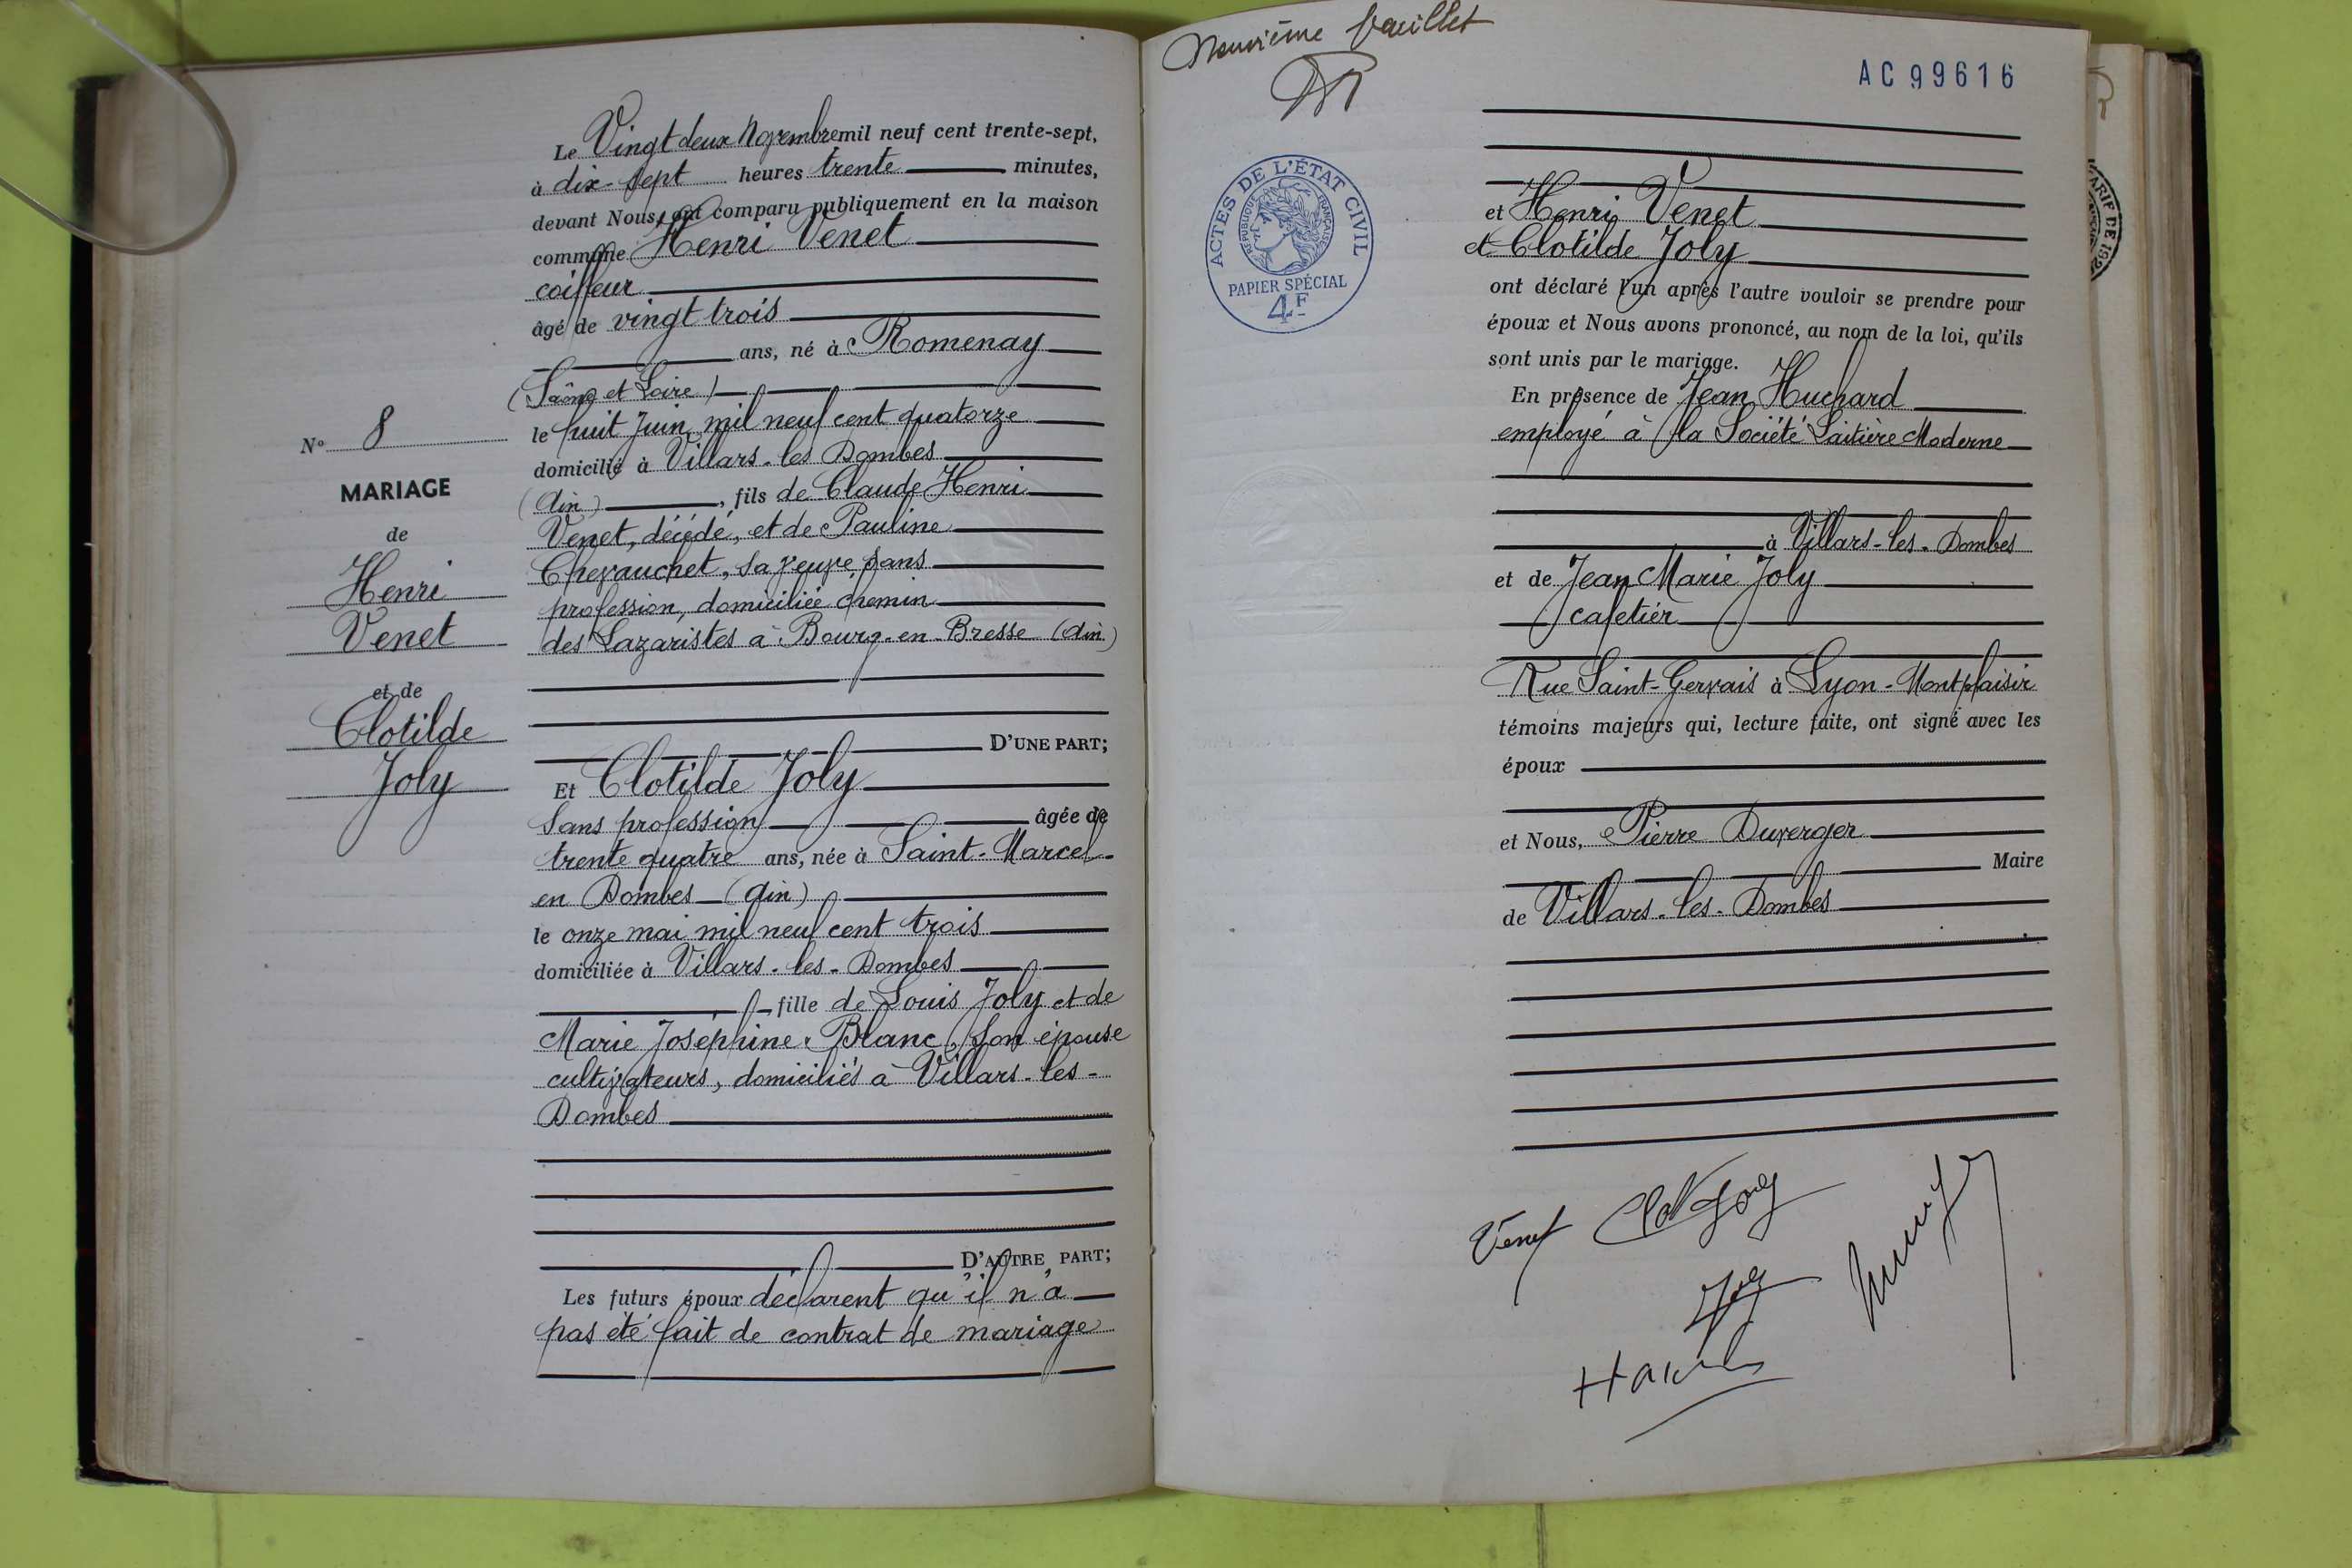 N° 8
MARIAGE
de
Henri
Venet
et de
Clotilde
Joly
Le Vingt deux Novembre mil neuf cent trente-sept,
à dix-sept heures trente minutes,
devant Nous, ont comparu publiquement en la maison
commune Henri Venet
coiffeur
âgé de vingt trois
ans, né à Romenay
(Saône et Loire)
le huit Juin mil neuf cent quatorze
domicilié à Villars-les Dombes
(Ain), fils de Claude Henri
Venet, décédé, et de Pauline
Chevauchet, sa veuve sans
profession, domiciliée chemin
des Lazaristes à Bourg-en-Bresse (Ain)
D'UNE PART;
Et Clotilde Joly
Sans profession âgée de
trente quatre ans, née à Saint-Marcel-
en Dombes (Ain)
le onze mai mil neuf cent trois
domiciliée à Villars-les-Dombes
fille de Louis Joly et de
Marie Joséphine Blanc, son épouse
cultivateurs, domiciliés à Villars-les-
Dombes
D'AUTRE PART;
Les futurs époux déclarent qu'il n'a
pas été fait de contrat de mariage
Neuvième feuillet
AC 99616
ACTES DE L'ÉTAT CIVIL
RÉPUBLIQUE FRANÇAISE
PAPIER SPÉCIAL
4F
et Henri Venet
et Clotilde Joly
ont déclaré l'un après l'autre vouloir se prendre pour
époux et Nous avons prononcé, au nom de la loi, qu'ils
sont unis par le mariage.
En présence de Jean Huchard
employé à la Société Laitière Moderne
à Villars-les-Dombes
et de Jean Marie Joly
cafetier
Rue Saint-Gervais à Lyon-Montplaisir
témoins majeurs qui, lecture faite, ont signé avec les
époux
et Nous, Pierre Duverger
Maire
de Villars-les-Dombes
Venet
Clot Joly
Joly